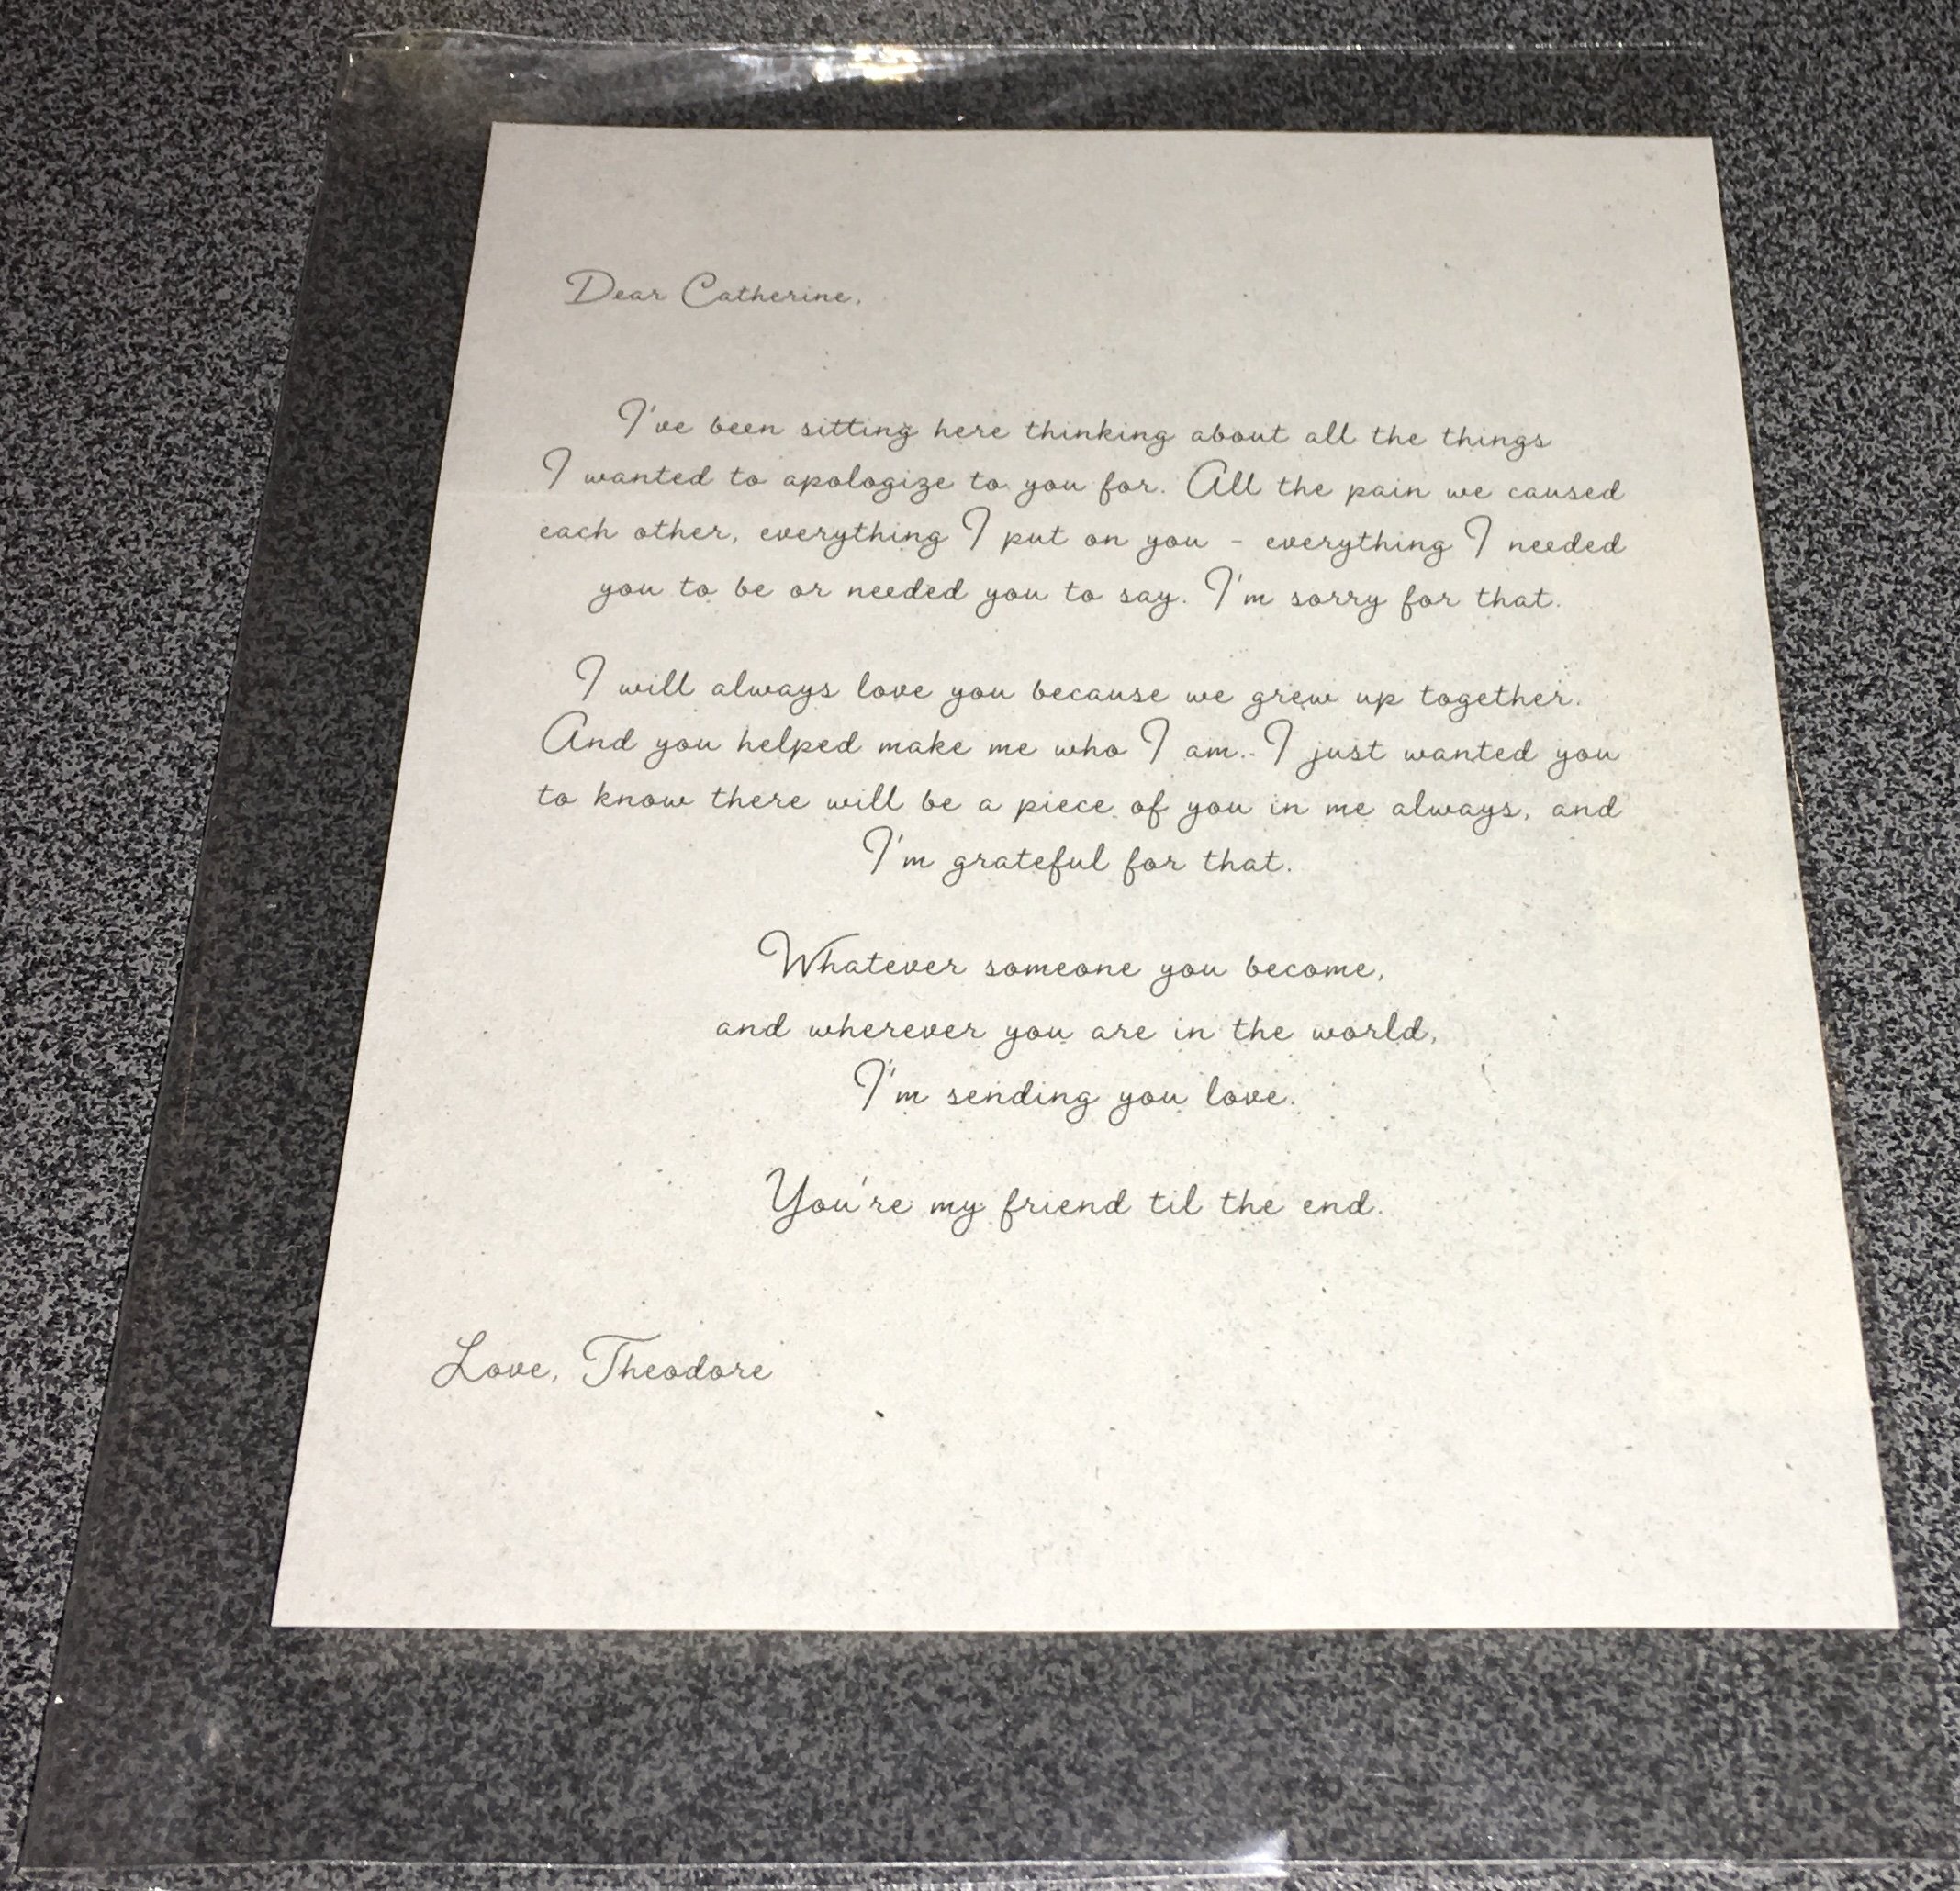 Dear Catherine,
I've been sitting here thinking about all the things
I wanted to apologize to you for. All the pain we caused
each other, everything I put on you - everything I needed
you to be or needed you to say. I'm sorry for that.
I will always love you because we grew up together.
And you helped make me who I am. I just wanted you
to know there will be a piece of you in me always, and
I'm grateful for that.
Whatever someone you become,
and wherever you are in the world,
I'm sending you love.
You're my friend til the end.
Love, Theodore